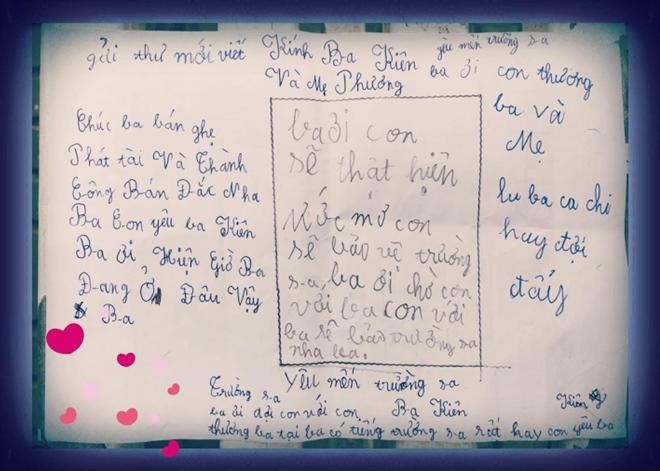 gửi thư mới viết
Kính Ba Kiên
yêu mến trường sa
Và Mẹ Phương
ba ơi con thương
ba và
Mẹ
lu ba ca chi
huy đợi
đấy
Chúc ba bán ghẹ
Phát tài Và Thành
Công Bán Đắc Nha
Ba Con yêu ba Kiên
Ba ơi Hiện Giờ Ba
Đang Ở Đâu Vậy
Ba
ba ơi con
sẽ thật hiện
Ước mơ con
sẽ bảo vệ trường
sa, ba ơi chờ con
với ba con với
ba sẽ bảo trường sa
nha ba.
Yêu mến trường sa
Trường sa
ba ơi đợi con với con
Ba Kiên
Kiên
thương ba tại ba có tiếng trường sa rất hay con yêu ba